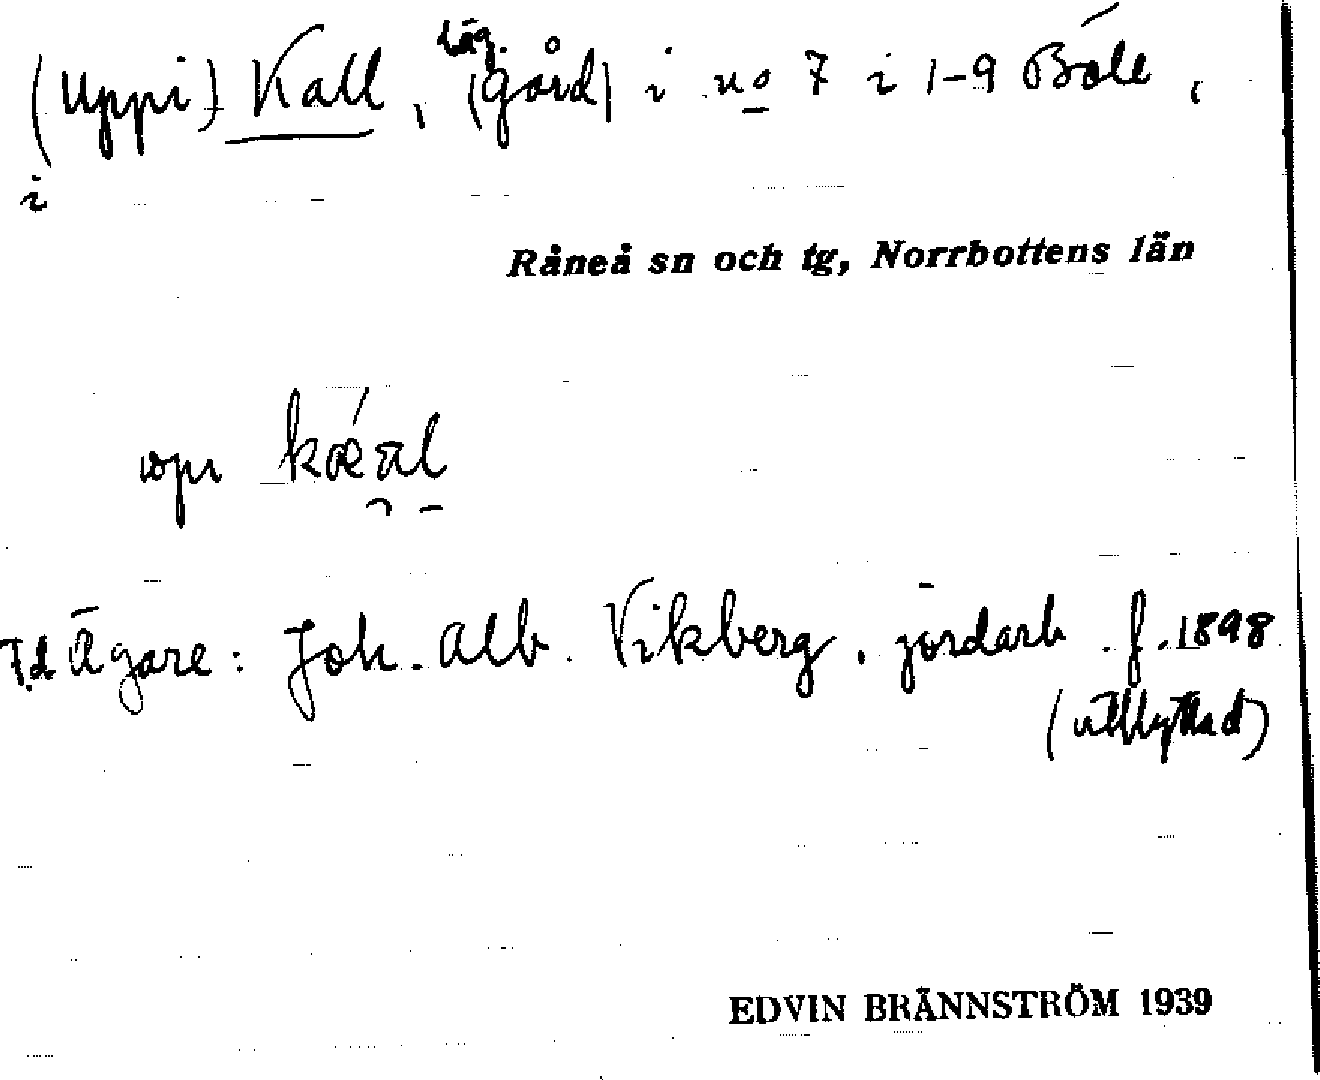 (Uppi) Kall, (gård) i no 7 i 1-9 Böle,
i
Råneå sn och tg, Norrbottens län
F.d. Ägare: Joh. Alb. Vikberg, jordarb. f. 1898
(utflyttad)
EDVIN BRÄNNSTRÖM 1939